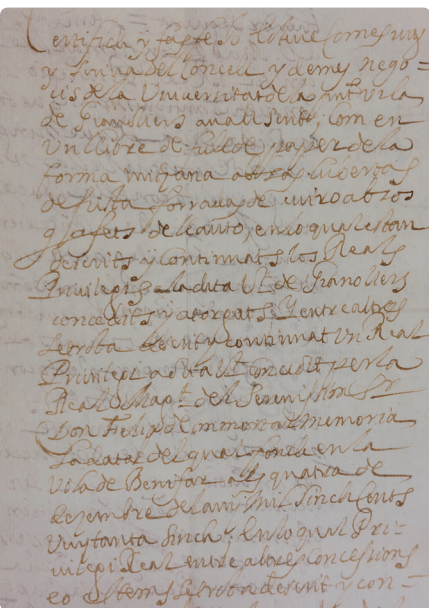 Certifich y fas fe Jo
y Sindic del Concell y demes nego=
cis de la Universitat de la pnt vila
de Granollers avall scrit, com en
un llibre de full de paper de la
forma mitjana ab dos cubertas
de fusta forradas de cuiro ab sos
gafets de llautó, en lo qual estan
descrits y continuats los Reals
Privilegis a la dita Vt. de Granollers
concedits y atorgats, y entre altres
se troba descrit y continuat un Real
Privilegi a dita Vt. concedit per la
Real Magt. del Serenissim Sr.
Don Felip de immortal memoria
La data del qual fonch en la
Vila de Benifar als quatra de
Dezembre del any Mil Sinch Cents
Vuytanta Sinch. En lo qual Pri-
vilegi Real entre altres Concessions
eo Items se troba descrit y con-